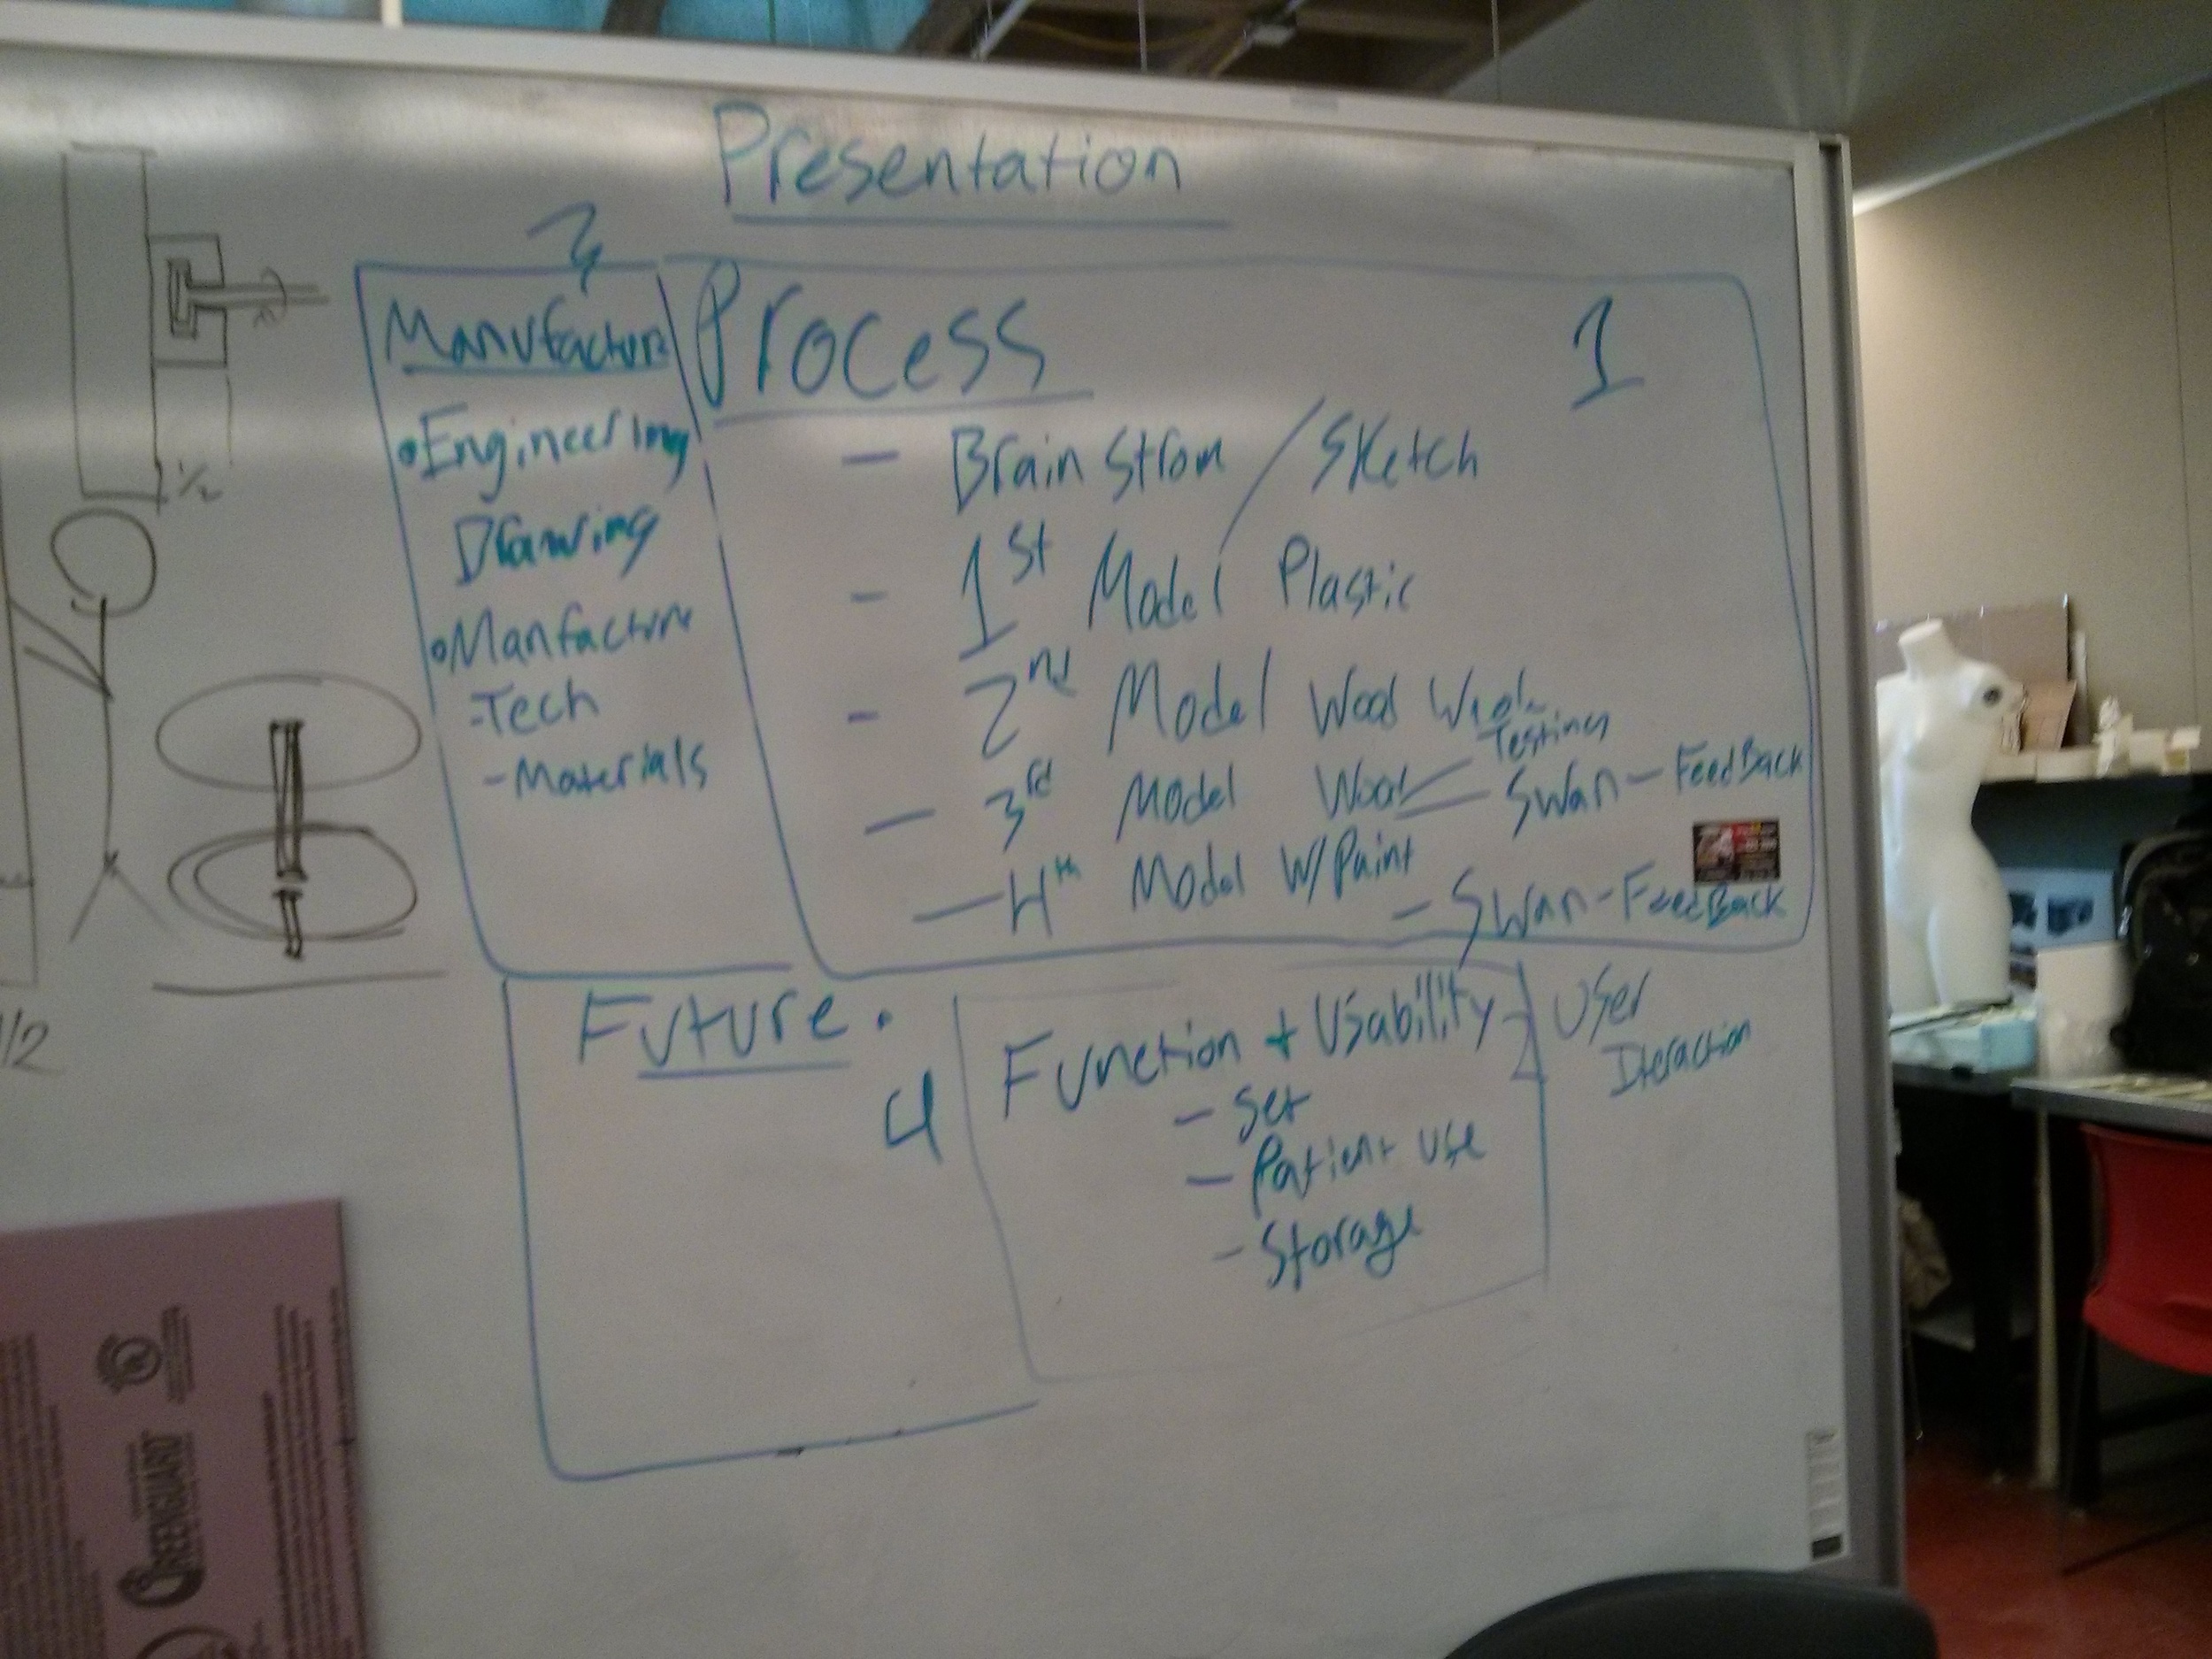 Presentation
3
Manufacture
• Engineering
Drawing
• Manfacture
- Tech
- Materials
Process
1
- Brain Strom / Sketch
- 1st Model Plastic
- 2nd Model Wood
Testing
- 3rd Model Wood - Swan - FeedBack
- 4th Model W/Paint
- Swan - FeedBack
Future.
4
Function + Usability
2
- Set
- Patient Use
- Storage
User
Iteraction
1/2
1/2
GREENGUARD